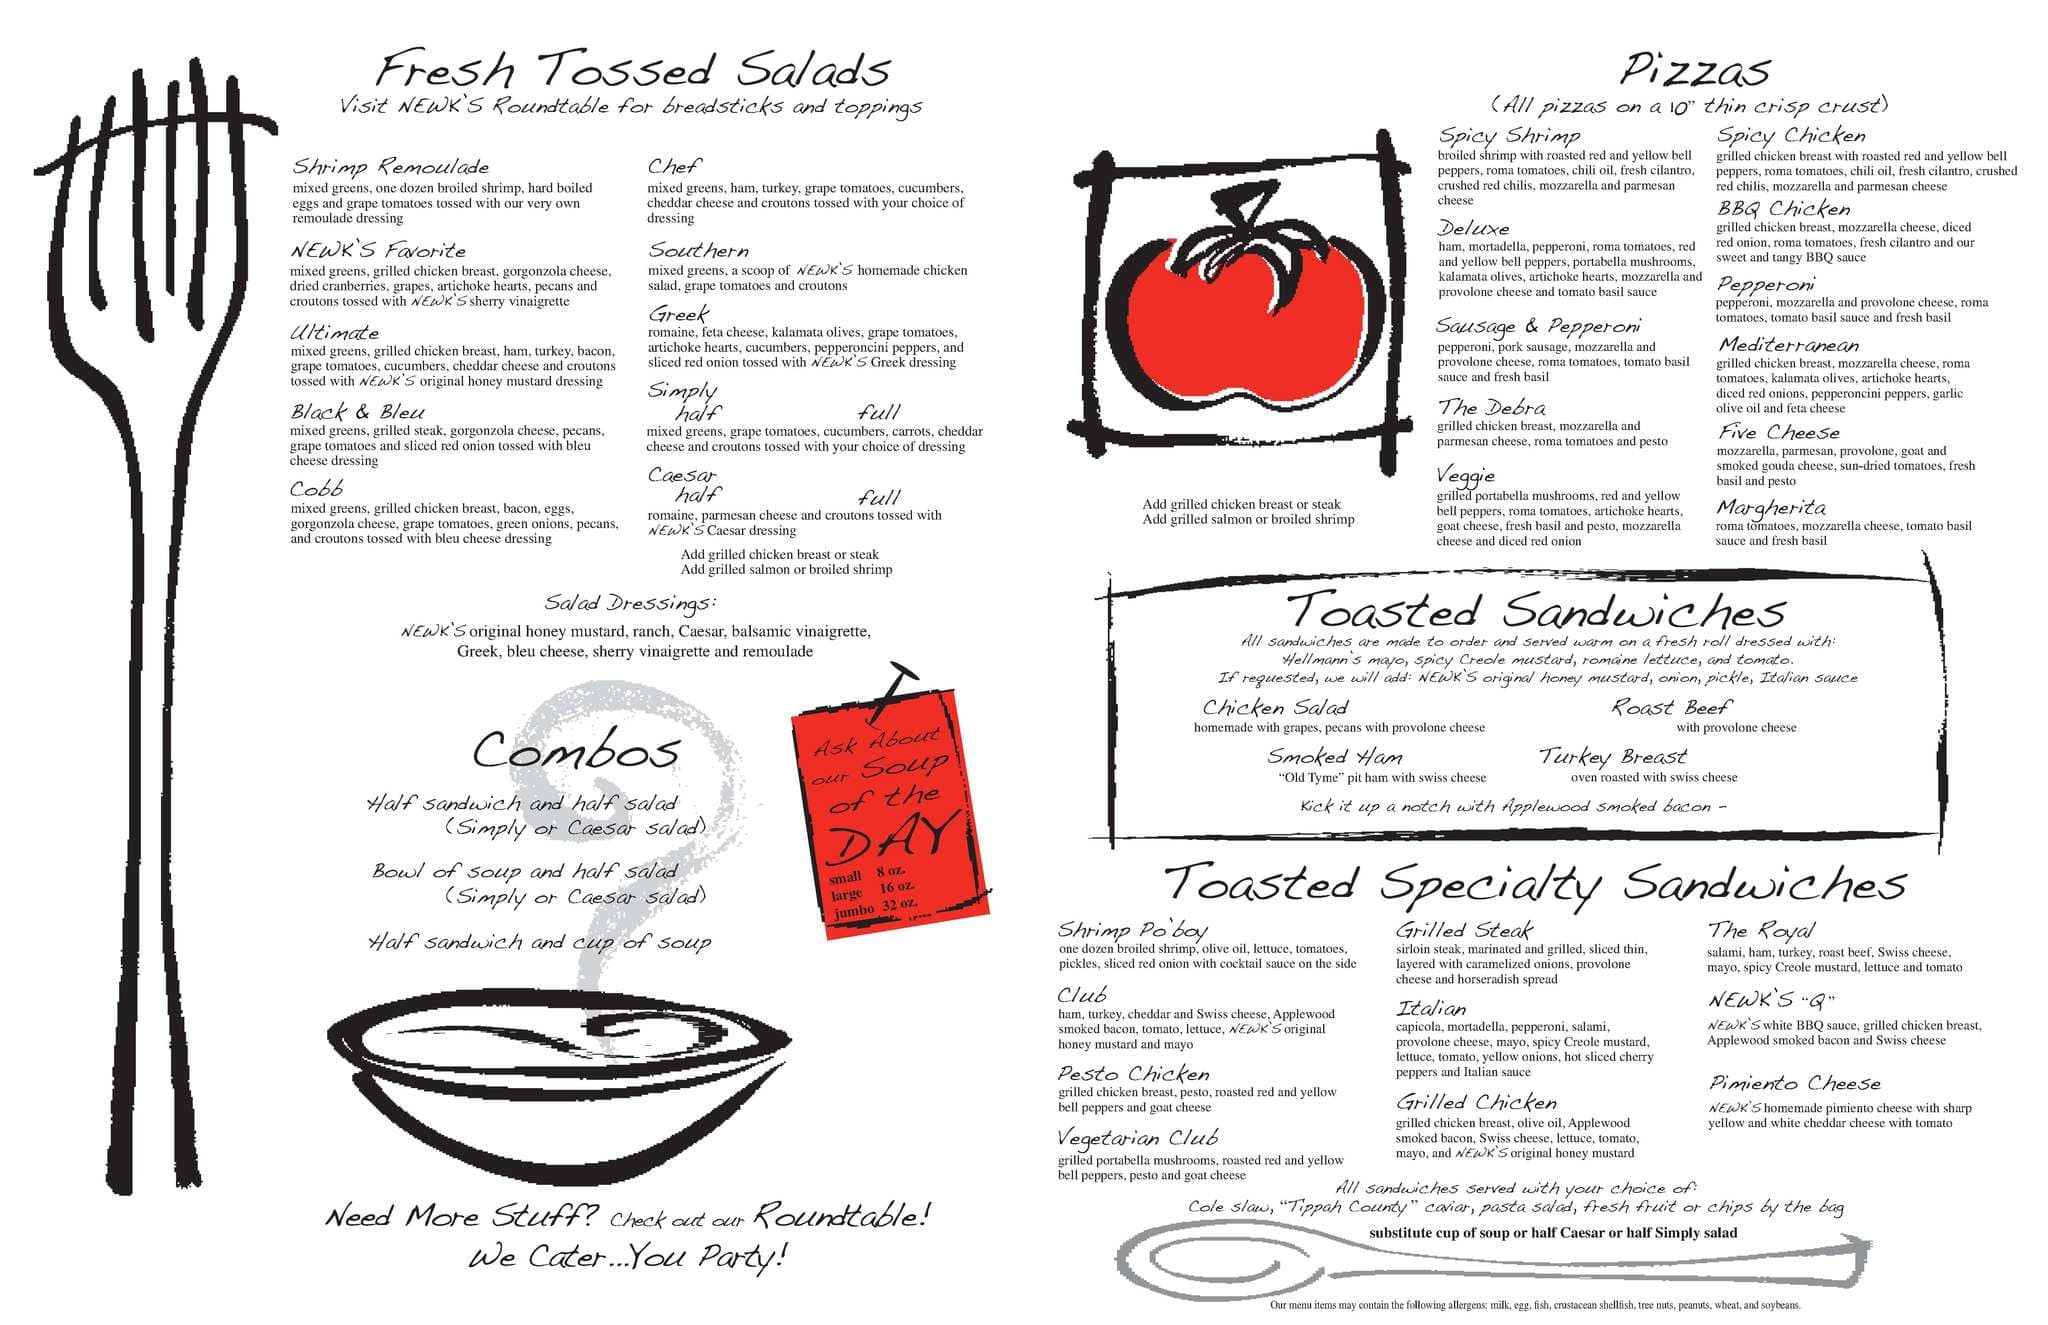 Fresh Tossed Salads
Visit NEWK'S Roundtable for breadsticks and toppings
Shrimp Remoulade
mixed greens, one dozen broiled shrimp, hard boiled
eggs and grape tomatoes tossed with our very own
remoulade dressing
NEWK'S Favorite
mixed greens, grilled chicken breast, gorgonzola cheese,
dried cranberries, grapes, artichoke hearts, pecans and
croutons tossed with NEWK'S sherry vinaigrette
Ultimate
mixed greens, grilled chicken breast, ham, turkey, bacon,
grape tomatoes, cucumbers, cheddar cheese and croutons
tossed with NEWK'S original honey mustard dressing
Black & Bleu
mixed greens, grilled steak, gorgonzola cheese, pecans,
grape tomatoes and sliced red onion tossed with bleu
cheese dressing
Cobb
mixed greens, grilled chicken breast, bacon, eggs,
gorgonzola cheese, grape tomatoes, green onions, pecans,
and croutons tossed with bleu cheese dressing
Chef
mixed greens, ham, turkey, grape tomatoes, cucumbers,
cheddar cheese and croutons tossed with your choice of
dressing
Southern
mixed greens, a scoop of NEWK'S homemade chicken
salad, grape tomatoes and croutons
Greek
romaine, feta cheese, kalamata olives, grape tomatoes,
artichoke hearts, cucumbers, pepperoncini peppers, and
sliced red onion tossed with NEWK'S Greek dressing
Simply
half full
mixed greens, grape tomatoes, cucumbers, carrots, cheddar
cheese and croutons tossed with your choice of dressing
Caesar
half full
romaine, parmesan cheese and croutons tossed with
NEWK'S Caesar dressing
Add grilled chicken breast or steak
Add grilled salmon or broiled shrimp
Salad Dressings:
NEWK'S original honey mustard, ranch, Caesar, balsamic vinaigrette,
Greek, bleu cheese, sherry vinaigrette and remoulade
Combos
Half sandwich and half salad
(Simply or Caesar salad)
Bowl of soup and half salad
(Simply or Caesar salad)
Half sandwich and cup of soup
Ask About
our Soup
of the
DAY
small 8 oz.
large 16 oz.
jumbo 32 oz.
Need More Stuff? Check out our Roundtable!
We Cater...You Party!
Pizzas
(All pizzas on a 10" thin crisp crust)
Spicy Shrimp
broiled shrimp with roasted red and yellow bell
peppers, roma tomatoes, chili oil, fresh cilantro,
crushed red chilis, mozzarella and parmesan
cheese
Deluxe
ham, mortadella, pepperoni, roma tomatoes, red
and yellow bell peppers, portabella mushrooms,
kalamata olives, artichoke hearts, mozzarella and
provolone cheese and tomato basil sauce
Sausage & Pepperoni
pepperoni, pork sausage, mozzarella and
provolone cheese, roma tomatoes, tomato basil
sauce and fresh basil
The Debra
grilled chicken breast, mozzarella and
parmesan cheese, roma tomatoes and pesto
Veggie
grilled portabella mushrooms, red and yellow
bell peppers, roma tomatoes, artichoke hearts,
goat cheese, fresh basil and pesto, mozzarella
cheese and diced red onion
Spicy Chicken
grilled chicken breast with roasted red and yellow bell
peppers, roma tomatoes, chili oil, fresh cilantro, crushed
red chilis, mozzarella and parmesan cheese
BBQ Chicken
grilled chicken breast, mozzarella cheese, diced
red onion, roma tomatoes, fresh cilantro and our
sweet and tangy BBQ sauce
Pepperoni
pepperoni, mozzarella and provolone cheese, roma
tomatoes, tomato basil sauce and fresh basil
Mediterranean
grilled chicken breast, mozzarella cheese, roma
tomatoes, kalamata olives, artichoke hearts,
diced red onions, pepperoncini peppers, garlic
olive oil and feta cheese
Five Cheese
mozzarella, parmesan, provolone, goat and
smoked gouda cheese, sun-dried tomatoes, fresh
basil and pesto
Margherita
roma tomatoes, mozzarella cheese, tomato basil
sauce and fresh basil
Add grilled chicken breast or steak
Add grilled salmon or broiled shrimp
Toasted Sandwiches
All sandwiches are made to order and served warm on a fresh roll dressed with:
Hellmann's mayo, spicy Creole mustard, romaine lettuce, and tomato.
If requested, we will add: NEWK'S original honey mustard, onion, pickle, Italian sauce
Chicken Salad
homemade with grapes, pecans with provolone cheese
Roast Beef
with provolone cheese
Smoked Ham
"Old Tyme" pit ham with swiss cheese
Turkey Breast
oven roasted with swiss cheese
Kick it up a notch with Applewood smoked bacon -
Toasted Specialty Sandwiches
Shrimp Po'boy
one dozen broiled shrimp, olive oil, lettuce, tomatoes,
pickles, sliced red onion with cocktail sauce on the side
Club
ham, turkey, cheddar and Swiss cheese, Applewood
smoked bacon, tomato, lettuce, NEWK'S original
honey mustard and mayo
Pesto Chicken
grilled chicken breast, pesto, roasted red and yellow
bell peppers and goat cheese
Vegetarian Club
grilled portabella mushrooms, roasted red and yellow
bell peppers, pesto and goat cheese
Grilled Steak
sirloin steak, marinated and grilled, sliced thin,
layered with caramelized onions, provolone
cheese and horseradish spread
Italian
capicola, mortadella, pepperoni, salami,
provolone cheese, mayo, spicy Creole mustard,
lettuce, tomato, yellow onions, hot sliced cherry
peppers and Italian sauce
Grilled Chicken
grilled chicken breast, olive oil, Applewood
smoked bacon, Swiss cheese, lettuce, tomato,
mayo, and NEWK'S original honey mustard
The Royal
salami, ham, turkey, roast beef, Swiss cheese,
mayo, spicy Creole mustard, lettuce and tomato
NEWK'S "Q"
NEWK'S white BBQ sauce, grilled chicken breast,
Applewood smoked bacon and Swiss cheese
Pimiento Cheese
NEWK'S homemade pimiento cheese with sharp
yellow and white cheddar cheese with tomato
All sandwiches served with your choice of:
Cole slaw, "Tippah County" caviar, pasta salad, fresh fruit or chips by the bag
substitute cup of soup or half Caesar or half Simply salad
Our menu items may contain the following allergens: milk, egg, fish, crustacean shellfish, tree nuts, peanuts, wheat, and soybeans.